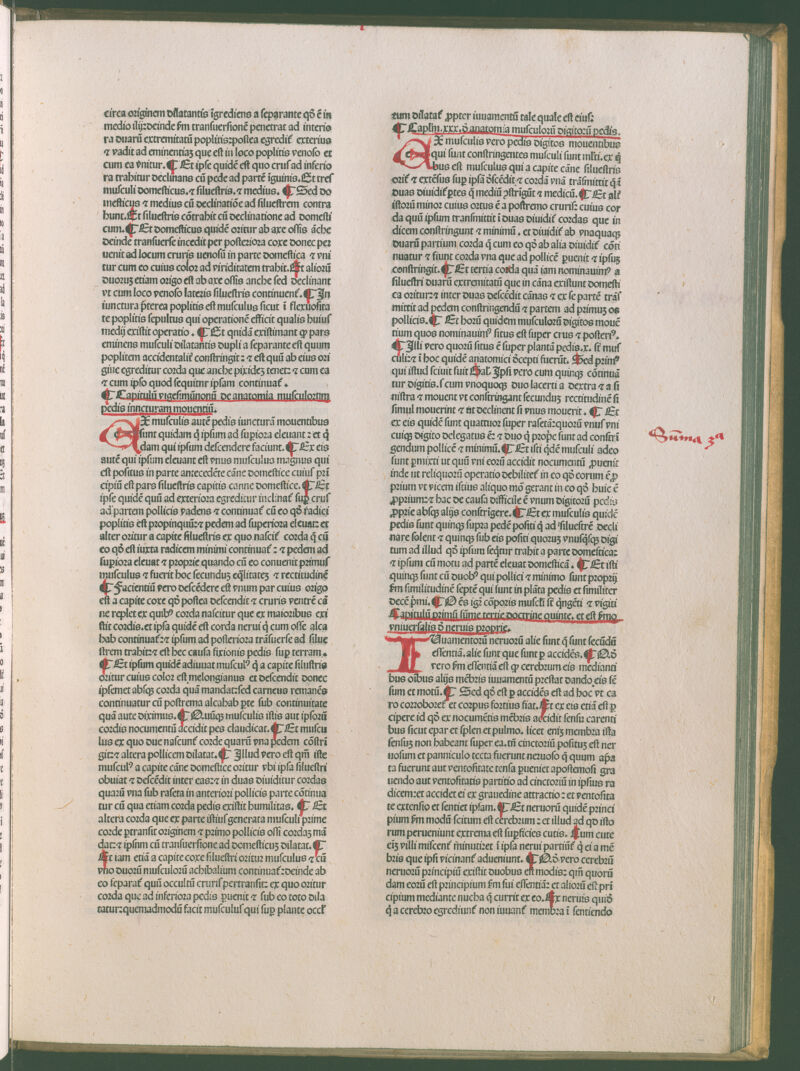 circa originem dilatantis īgrediens a separante qḋ ē in
medio ilij: deinde ꝑm transuersionē penetrat ad interio
ra duarū extremitatū poplitis: postea egredit exterius
⁊ vadit ad eminentiaꝫ que est in loco poplitis venoso et
cum ea vnitur. ¶ Et ipse quidē est quo crus ad inferio
ra trahitur declinans cū pede ad partē īguinis. Et tres
musculi domesticus. ⁊ siluestris. ⁊ medius. ¶ Sed do
mesticus ⁊ medius cū declinatiōe ad siluestrem contra
hunt. Et siluestris cōtrahit cū declinatione ad domesti
cum. ¶ Et domesticus quidē oritur ab axe ossis āche
deinde transuerse incedit per posteriora coxe donec per
uenit ad locum cruris uenosū in parte domestica ⁊ vni
tur cum eo cuius color ad viriditatem trahit. Et alioꝝ
duoruꝫ etiam origo est ab axe ossis anche sed declinant
vt cum loco venoso lateris siluestris continuent. ¶ In
iunctura ꝑterea poplitis est musculus sicut ī flexuosita
te poplitis sepultus qui operationē efficit qualis huius
medij existit operatio. ¶ Et quidā existimant ꝙ pars
eminens musculi dilatantis dupli a separante est quum
poplitem accidentaliť constringit: ⁊ est quū ab eius ori
gine egreditur corda que anche pixideꝫ tenet: ⁊ cum ea
⁊ cum ipso quod sequitur ipsam continuať.
¶ Capitulū vigesimūnonū de anatomia musculorum
pedis iuncturam mouentiū.
EX musculis autē pedis iuncturā mouentibus
sunt quidam q̄ ipsum ad supiora eleuant: et q̄
dam qui ipsum descendere faciunt. ¶ Ex eis
autē qui ipsum eleuant est vnus musculus magnus qui
est positus in parte antecedēte cāne domestice cuius prī
cipiū est pars siluestris capitis canne domestice. ¶ Et
ipse quidē quū ad exteriora egreditur inclinať suꝑ crus
ad partem pollicis vadens ⁊ continuať cū eo qḋ radici
poplitis est propinquū: ⁊ pedem ad superiora eleuat: et
alter oritur a capite siluestris ex quo nasciť corda q̄ cū
eo qḋ est iuxta radicem minimi continuať: ⁊ pedem ad
supiora eleuat ⁊ proprie quando cū eo conuenit primus
musculus ⁊ fuerit hoc secunduꝫ eq̄litateꝫ ⁊ rectitudinē
¶ Facientiū vero descēdere est vnum par cuius origo
est a capite coxe qḋ postea descendit ⁊ cruris ventrē cā
ne replet ex quibꝰ corda nascitur que ex maioribus exi
stit cordis. et ipsa quidē est corda nerui q̄ cum osse alca
hab continuať: ⁊ ipsum ad posteriora trāsuerse ad silue
strem trahit: ⁊ est hec causa fixionis pedis sup terram.
¶ Et ipsum quidē adiuuat musculꝰ q̄ a capite siluestris
oritur cuius color est melongianus et descendit donec
ipsemet absqꝫ corda quā mandat: sed carneus remanēs
continuatur cū postrema alcahab pte sub continuitate
quā ante diximus. ¶ Quūqꝫ musculis istis aut ipsoꝝ
cordis nocumentū accidit pes claudicat. ¶ Et muscu
lus ex quo due nascunt corde quarū vna pedem cōstrī
git: ⁊ altera pollicem dilatat. ¶ Illud vero est qm̄ iste
musculꝰ a capite cāne domestice oritur vbi ipsa siluestri
obuiat ⁊ descēdit inter eas: ⁊ in duas diuiditur cordas
quarū vna sub raseta in anteriori pollicis parte cōtinua
tur cū qua etiam corda pedis existit humilitas. ¶ Et
altera corda que ex parte istius generata musculi prime
corde ptransit originem ⁊ primo pollicis ossi cordaꝫ mā
dat: ⁊ ipsum cū transuersione ad domesticuꝫ dilatat. ¶
Et iam etiā a capite coxe siluestri oritur musculus ⁊ cū
vno duorū musculorū achibalium continuať: deinde ab
eo separať quū occultū cruris pertransit: ex quo oritur
corda que ad inferiora pedis ꝓuenit ⁊ sub eo toto dila
tatur: quemadmodū facit musculus qui suꝑ plante occť
tum dilatať ꝓpter iuuamentū tale quale est eius:
¶ Caplm̄.xxx. ḋ anatomia musculorū digitorū pedis.
EX musculis vero pedis digitos mouentibus
qui sunt constringentes musculi sunt mľti. ex q̄
bus est musculus qui a capite cāne siluestris
oriť ⁊ extēsus sup ipsā ḋscēdit ⁊ cordā vnā trāsmittit q̄ ī
duas diuidiť ptes q̄ mediū ꝯstrīgūt ⁊ medicū. ¶ Et alľ
istorū minor cuius ortus ē a postremo cruris: cuius cor
da quū ipsum transmittit ī duas diuidit cordas que in
dicem constringunt ⁊ minimū. et diuidiť ab vnaquaqꝫ
duarū partium corda q̄ cum eo qḋ ab alia diuidiť cōti
nuatur ⁊ fiunt corda vna que ad pollicē ꝓuenit ⁊ ipsuꝫ
constringit. ¶ Et tertia corda quā iam nominauimꝰ a
siluestri duarū extremitatū que in cāna existunt domesti
ca oritur: ⁊ inter duas descēdit cānas ⁊ ex se partē trāſ
mittit ad pedem constringendū ⁊ partem ad primuꝫ os
pollicis. ¶ Et horū quidem musculorū digitos mouē
tium quos nominauimꝰ situs est super crus ⁊ posterꝰ.
¶ Illi vero quorū situs ē super plantā pedis.x. sť mus
culi: ⁊ ī hoc quidē anatomici ḋcepti fuerūt. Sed primꝰ
qui istud sciuit fuit Gal. Ipsi vero cum quinqꝫ cōtinuā
tur digitis. s. cum vnoquoqꝫ duo lacerti a dextra ⁊ a si
nistra ⁊ mouent vt constringant secunduꝫ rectitudinē si
simul mouerint ⁊ ut declinent si vnus mouerit. ¶ Et
ex eis quidē sunt quattuor super rasetā: quorū vnus vni
cuiqꝫ digito delegatus ē: ⁊ duo q̄ prope sunt ad constrī
gendum pollicē ⁊ minimū. ¶ Et isti qdē musculi adeo
sunt ꝑmixti ut quū vni eorū accidit nocumentū ꝓuenit
inde ut reliquorū operatio debiliteť in eo qḋ eorum ē ꝓ
prium vt vicem istius aliquo mō gerant in eo qḋ huic ē
ꝓprium: ⁊ hac de causa difficile ē vnum digitorū pedis
ꝓprie absqꝫ alijs constrīgere. ¶ Et ex musculis quidē
pedis sunt quinqꝫ supra pedē positi q̄ ad siluestrē decli
nare solent ⁊ quinqꝫ sub eis positi quoruꝫ vnusqͥsqꝫ digi
tum ad illud qḋ ipsum seqtur trahit a parte domestica:
⁊ ipsum cū motu ad partē eleuat domesticā. ¶ Et isti
quinqꝫ sunt cū duobꝰ qui pollici ⁊ minimo sunt proprij
ꝑm similitudinē septē qui sunt in plāta pedis et similiter
decē pm̄i. ¶ Oēs igͥ cōporis musculi sť qn̄gēti ⁊ vigīti
Capitulū primū sūme tertie doctrine quinte. et est ẜmo
vniuersalis ḋ neruis proprie.
IUuamentorū neruorū alie sunt q̄ sunt secūdū
essentiā. alie sunt que sunt ꝑ accidēs. ¶ Qḋ
vero ꝑm essentiā est ꝙ cerebrum eis medianti
bus oībus alijs mēbris iuuamentū prestat dando eis sē
sum et motū. ¶ Sed qḋ est ꝑ accidēs est ad hoc vt ca
ro corroboreť et corpus fortius fiat. Et ex eis etiā est ꝑ
cipere id qḋ ex nocumētis mēbris accidit sensu carenti
bus sicut epar et splen et pulmo. licet eniꝫ membra ista
sensuꝫ non habeant super ea. tn̄ cinctorū positus est ner
uosum et panniculo tecta fuerunt neruoso q̄ quum apa
ta fuerunt aut ventositate tensa ꝓueniet apostemosi gra
uendo aut ventositatis partitio ad cinctorū in ipsius ra
dicem: et accidet ei ex grauedine attractio: et ventosita
te extensio et sentiet ipsam. ¶ Et neruorū quidē princi
pium ꝑm modū scitum est cerebrum: et illud ad qḋ isto
rum perueniunt extrema est supficies cutis. Cum cute
eiꝫ villi miscent minuti: et ī ipsa nerui partiunť q̄ ei a mē
bris que ipsi vicinanť adueniunt. ¶ Qḋ vero cerebrū
neruorū principiū existit duobus est modis: qm̄ quorū
dam eorū est principium ꝑm sui essentiā: et aliorū est prī
cipium mediante nucha q̄ currit ex eo. Ex neruis quiḋ
q̄ a cerebro egrediunť non iuuanť membra ī sentiendo
Sūma 3ª